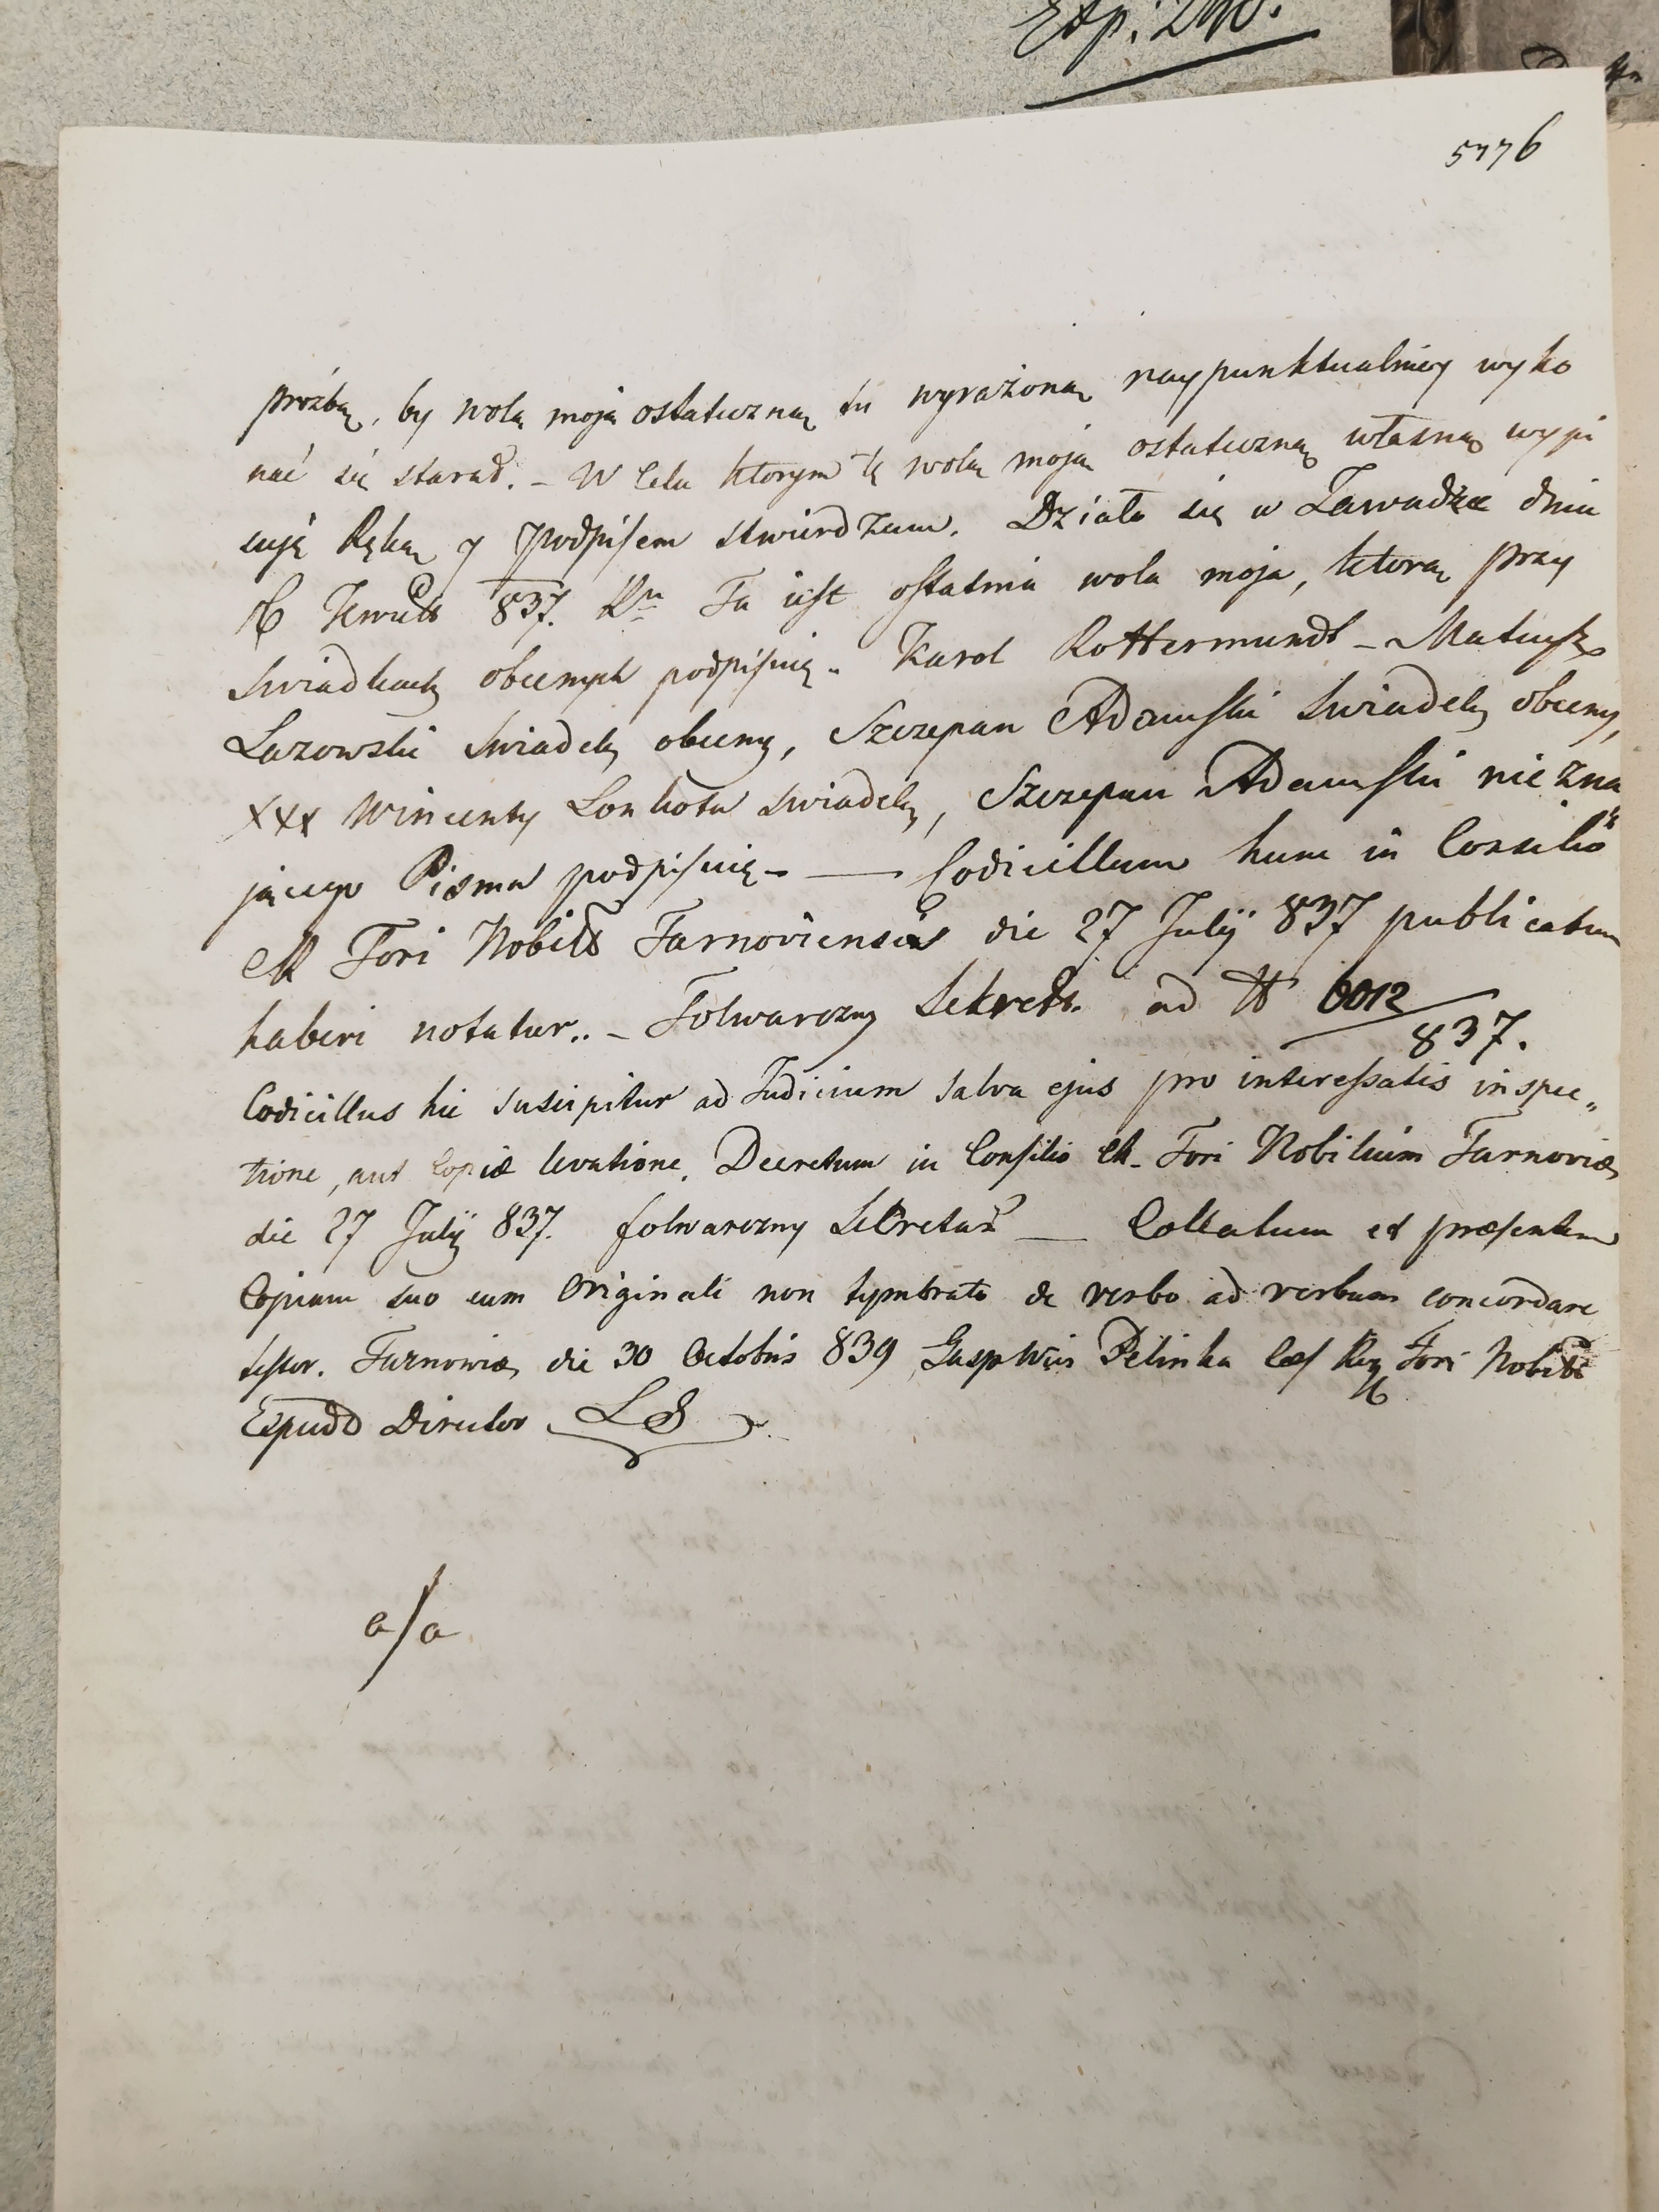 Exp: 240.
5776
prożbą, by wolą moją ostateczną tu wyrażoną naypunktualniey wyko
nać się starał. – W Celu ktorym tę wolą moją ostateczną własną wypi
suję Ręką y Podpisem stwierdzam. Działo się w Zawadzce dnia
Kwiet 837. Ru Ta iest ostatnia wola moja, ktorą przy
swiadkach obecnych podpisuię. Karol Rottermundt – Mateusz
Lazowski swiadek obecny, Szczepan Adamski swiadek obecny,
xxx Wincenty Lonkota swiadek, Szczepan Adamski nie zna
jącego Pisma podpisuię – — Codicillum hunc in Consilio
CR Fori Nobilt Tarnoviensis die 27 Julÿ 837 publicatum
haberi notatur.. – Folwarczny Sekrett. ad N 6012
837.
Codicillus hic suscipitur ad Judicium salva ejus pro interessatis inspec„
tione, aut Copiæ levatione. Decretum in Consilio CR. Fori Nobilium Tarnoviæ
die 27 Julÿ 837. folwarczny Sekretar — Collatum et præsentem
Copiam suo cum Originali non tymbrato de verbo ad verbum concordare
testor. Tarnowiæ die 30 Octobris 839 Gasp Wur Pelinka Cæs Reg Fori Nobilt
Expedd Director LS
a/a